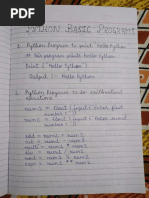 PYTHON BASIC PROGRAMS
1. Python Program to print Hello Python
# This program prints Hello Python
Print ('Hello Python')
Output : Hello Python
2. Python Program to do arithmetical
operations
num 1 = input ('Enter first
number: ')
num 2 = input ('Enter second
number: ')
add = num 1 + num 2
sub = num 1 - num 2
mul = num 1 * num 2
div = num 1 / num 2